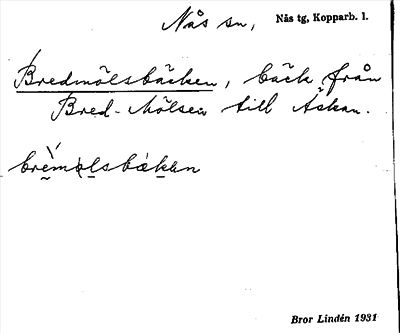 Nås sn, Nås tg, Kopparb. l.
Bredmölsbäcken, bäck från
Bred-Mölsen till Askan.
Bror Lindén 1931